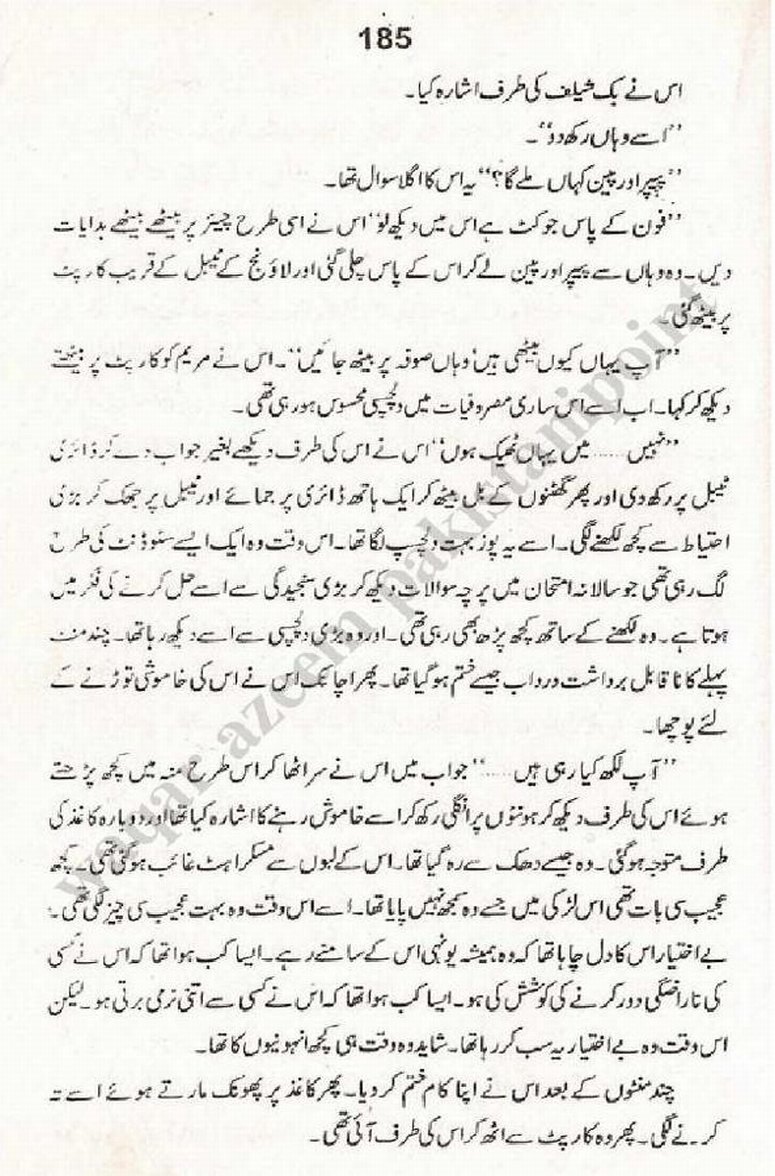 185
اس نے بک شیلف کی طرف اشارہ کیا۔
’’اسے وہاں رکھ دو‘‘۔
’’پیپر اور پین کہاں ملے گا؟‘‘ یہ اس کا اگلا سوال تھا۔
’’فون کے پاس جو کٹ ہے اس میں دیکھ لو‘‘ اس نے اسی طرح چیئر پر بیٹھے بیٹھے ہدایات
دیں۔ وہ وہاں سے پیپر اور پین لے کر اس کے پاس چلی گئی اور لاؤنج کے ٹیبل کے قریب کارپٹ
پر بیٹھ گئی۔
’’آپ یہاں کیوں بیٹھی ہیں‘ وہاں صوفہ پر بیٹھ جائیں‘‘۔ اس نے مریم کو کارپٹ پر بیٹھتے
دیکھ کر کہا۔ اب اسے اس ساری مصروفیات میں دلچسپی محسوس ہو رہی تھی۔
’’نہیں ...... میں یہاں ٹھیک ہوں‘‘ اس نے اس کی طرف دیکھے بغیر جواب دے کر ڈائری
ٹیبل پر رکھ دی اور پھر گھٹنوں کے بل بیٹھ کر ایک ہاتھ ڈائری پر جمائے اور ٹیبل پر جھک کر بڑی
احتیاط سے کچھ لکھنے لگی۔ اسے یہ پوز بہت دلچسپ لگا تھا۔ اس وقت وہ ایک ایسے سٹوڈنٹ کی طرح
لگ رہی تھی جو سالانہ امتحان میں پرچہ سوالات دیکھ کر بڑی سنجیدگی سے اسے حل کرنے کی فکر میں
ہوتا ہے۔ وہ لکھنے کے ساتھ کچھ پڑھ بھی رہی تھی۔ اور وہ بڑی دلچسپی سے اسے دیکھ رہا تھا۔ چند منٹ
پہلے کا ناقابل برداشت درد اب جیسے ختم ہو گیا تھا۔ پھر اچانک اس نے اس کی خاموشی توڑنے کے
لئے پوچھا۔
’’آپ لکھ کیا رہی ہیں ......‘‘ جواب میں اس نے سر اٹھا کر اس طرح منہ میں کچھ پڑھتے
ہوئے اس کی طرف دیکھ کر ہونٹوں پر انگلی رکھ کر اسے خاموش رہنے کا اشارہ کیا تھا اور دوبارہ کاغذ کی
طرف متوجہ ہو گئی۔ وہ جیسے دھک سے رہ گیا تھا۔ اس کے لبوں سے مسکراہٹ غائب ہو گئی تھی۔ کچھ
عجیب سی بات تھی اس لڑکی میں جسے وہ سمجھ نہیں پایا تھا۔ اسے اس وقت وہ بہت عجیب سی چیز لگی تھی۔
بے اختیار اس کا دل چاہا تھا کہ وہ ہمیشہ یونہی اس کے سامنے رہے۔ ایسا کب ہوا تھا کہ اس نے کسی
کی ناراضگی دور کرنے کی کوشش کی ہو۔ ایسا کب ہوا تھا کہ اس نے کسی سے اتنی نرمی برتی ہو۔ لیکن
اس وقت وہ بے اختیار یہ سب کر رہا تھا۔ شاید وہ وقت ہی کچھ انہونیوں کا تھا۔
چند منٹوں کے بعد اس نے اپنا کام ختم کر دیا۔ پھر کاغذ پر پھونک مارتے ہوئے اسے تہ
کرنے لگی۔ پھر وہ کارپٹ سے اٹھ کر اس کی طرف آئی تھی۔
waqar azeem pakistanipoint